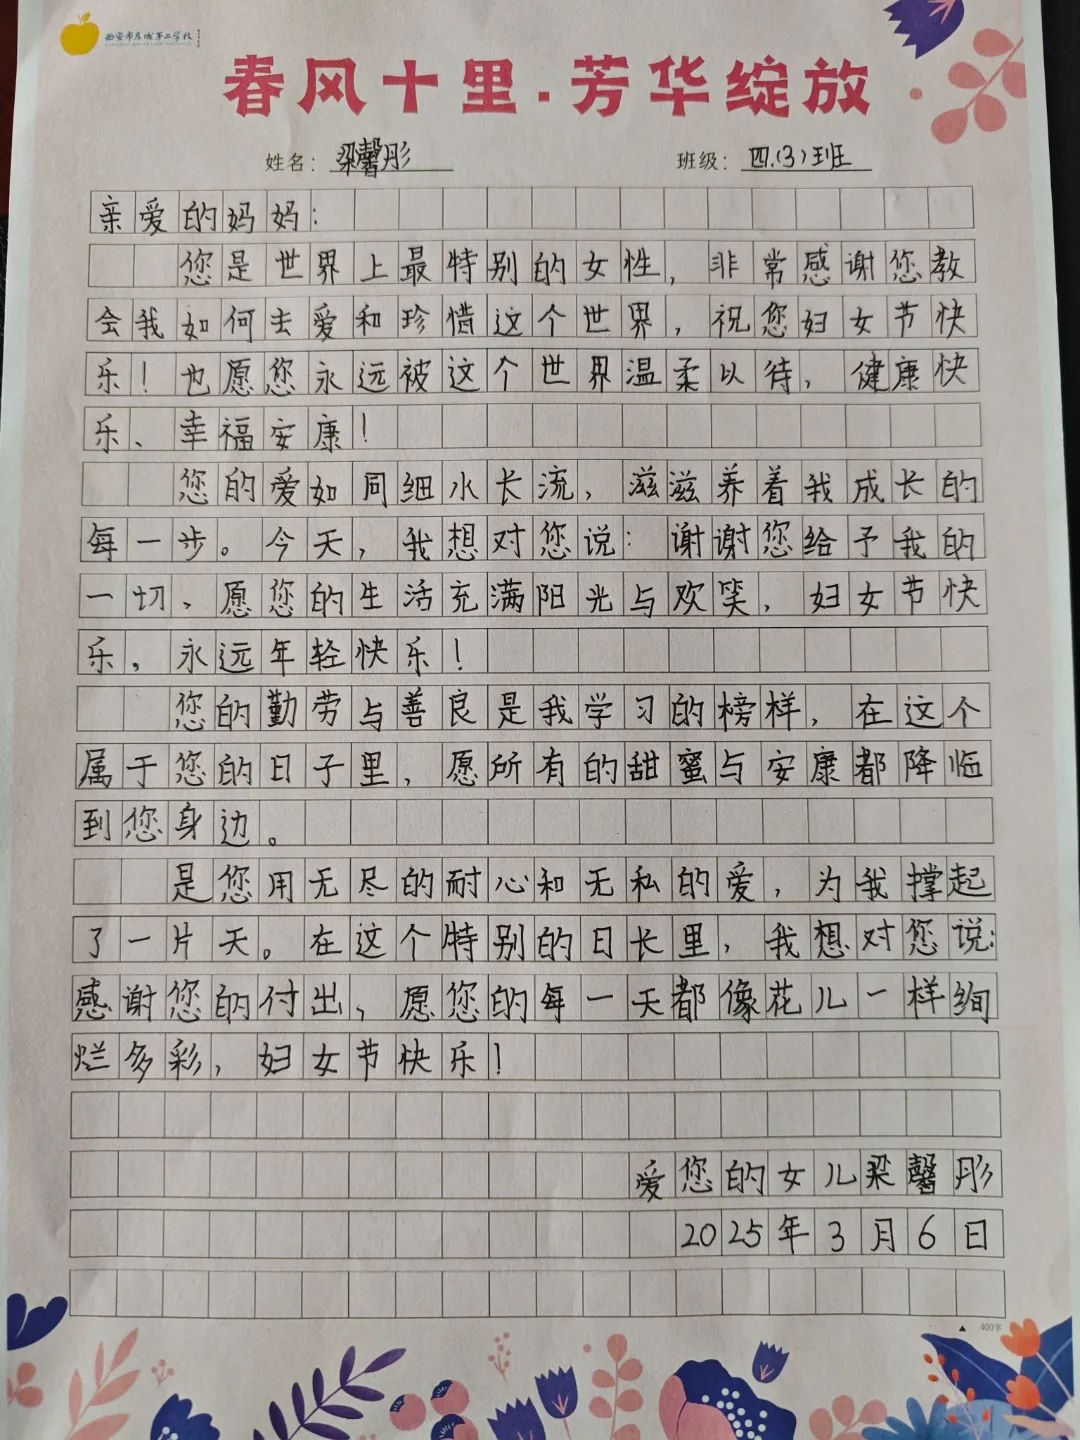 西安市东城第二学校
春风十里·芳华绽放
姓名：梁馨彤 班级：四.(3)班
亲爱的妈妈：
您是世界上最特别的女性，非常感谢您教
会我如何去爱和珍惜这个世界，祝您妇女节快
乐！也愿您永远被这个世界温柔以待，健康快
乐、幸福安康！
您的爱如同细水长流，滋滋养着我成长的
每一步。今天，我想对您说：谢谢您给予我的
一切，愿您的生活充满阳光与欢笑，妇女节快
乐，永远年轻快乐！
您的勤劳与善良是我学习的榜样，在这个
属于您的日子里，愿所有的甜蜜与安康都降临
到您身边。
是您用无尽的耐心和无私的爱，为我撑起
了一片天。在这个特别的日长里，我想对您说：
感谢您的付出，愿您的每一天都像花儿一样绚
烂多彩，妇女节快乐！
爱您的女儿梁馨彤
2025年3月6日
▲ 400字